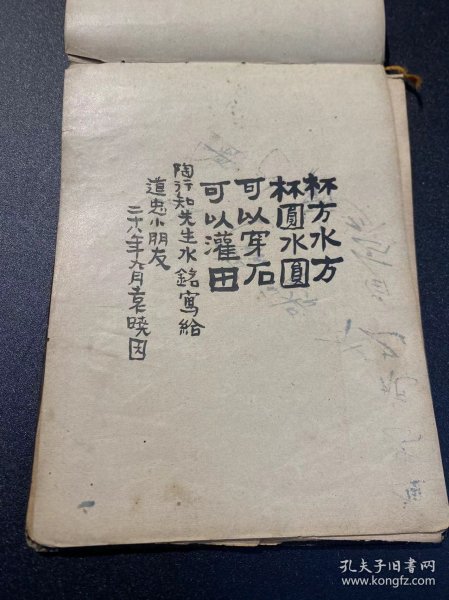 杯方水方
杯圓水圓
可以穿石
可以灌田
陶行知先生水銘寫給
道忠小朋友
二十八年九月袁曉因
孔夫子旧书网
www.kongfz.com